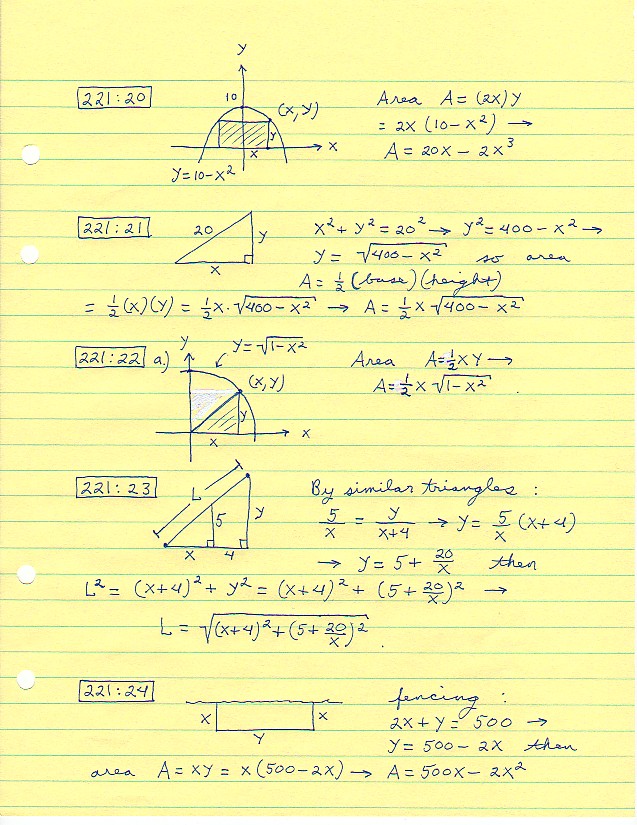 y
221:20
10
(x, y)
y
x
x
y=10-x²
Area A = (2x)y
= 2x (10-x²) →
A = 20x - 2x³
221:21
20
y
x
x² + y² = 20² → y² = 400 - x² →
y = √(400 - x²) so area
A = 1/2 (base)(height)
= 1/2 (x)(y) = 1/2 x · √(400 - x²) → A = 1/2 x √(400 - x²)
221:22 a.)
y
y = √(1-x²)
(x, y)
y
x
x
Area A = 1/2 xy →
A = 1/2 x √(1-x²) .
221:23
L
5
y
x
4
By similar triangles :
5/x = y/(x+4) → y = 5/x (x+4)
→ y = 5 + 20/x then
L² = (x+4)² + y² = (x+4)² + (5 + 20/x)² →
L = √((x+4)² + (5 + 20/x)²) .
221:24
x
x
y
fencing :
2x + y = 500 →
y = 500 - 2x then
area A = xy = x(500-2x) → A = 500x - 2x²